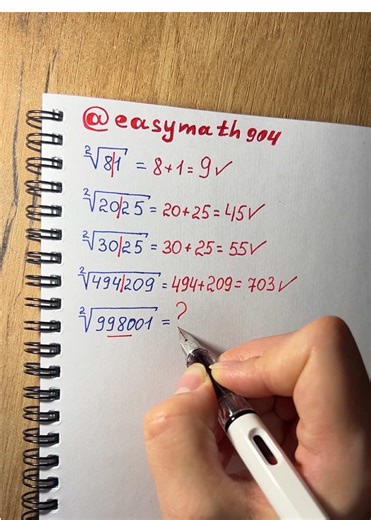 @easymath904
²√81 = 8+1 = 9✓
²√2025 = 20+25 = 45✓
²√3025 = 30+25 = 55✓
²√494209 = 494+209 = 703✓
²√998001 = ?